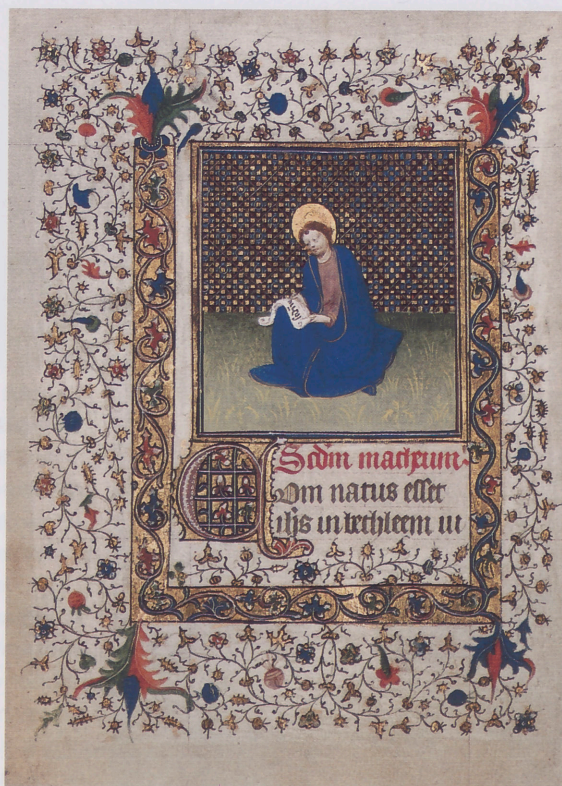 Scdm matheum·
CVm natus esset
ihs in bethleem iu